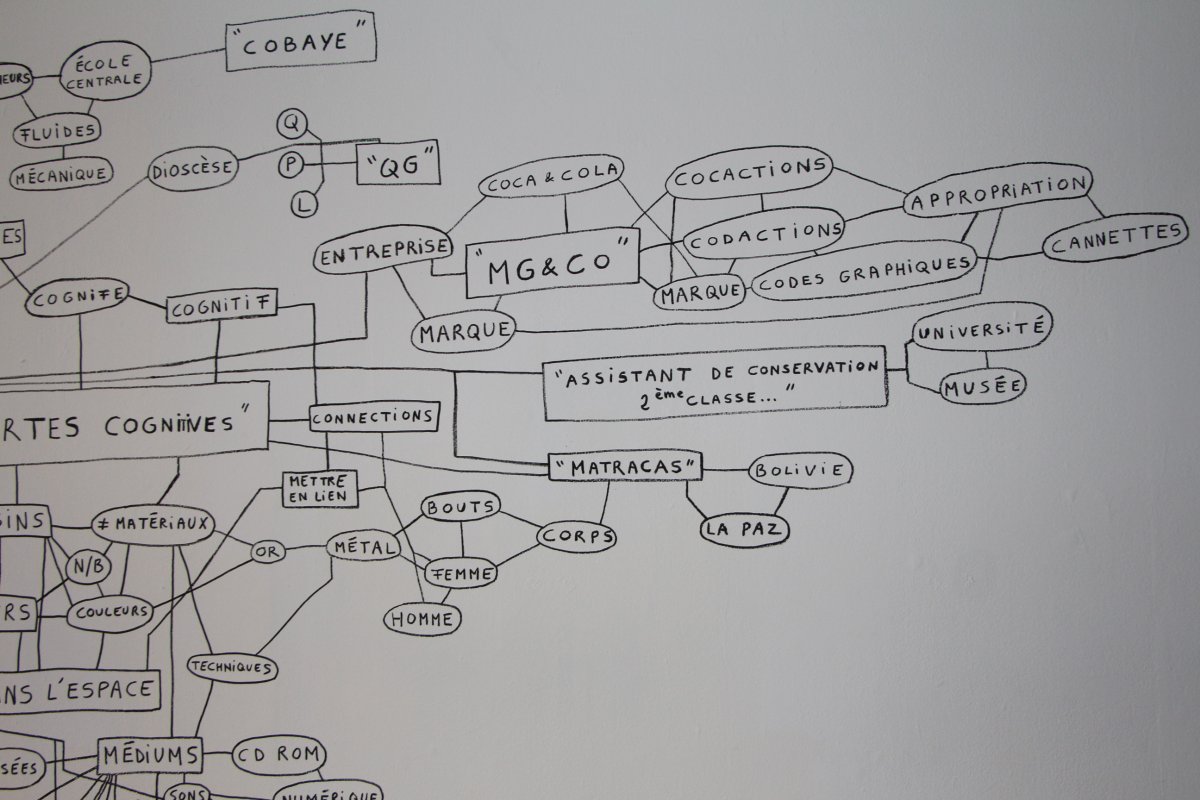 "COBAYE"
ÉCOLE
CENTRALE
FLUIDES
MÉCANIQUE
Q
P
L
"QG"
DIOSCÈSE
COCA & COLA
COCACTIONS
APPROPRIATION
CANNETTES
CODACTIONS
ENTREPRISE
"MG&CO"
CODES GRAPHIQUES
MARQUE
MARQUE
ES
COGNIFE
COGNITIF
UNIVERSITÉ
MUSÉE
"ASSISTANT DE CONSERVATION
2ème CLASSE..."
RTES COGNITIVES"
CONNECTIONS
"MATRACAS"
BOLIVIE
LA PAZ
METTRE
EN LIEN
BOUTS
CORPS
SINS
# MATÉRIAUX
OR
MÉTAL
FEMME
N/B
HOMME
RS
COULEURS
TECHNIQUES
NS L'ESPACE
MÉDIUMS
CD ROM
SÉES
SONS
NUMÉRIQUE